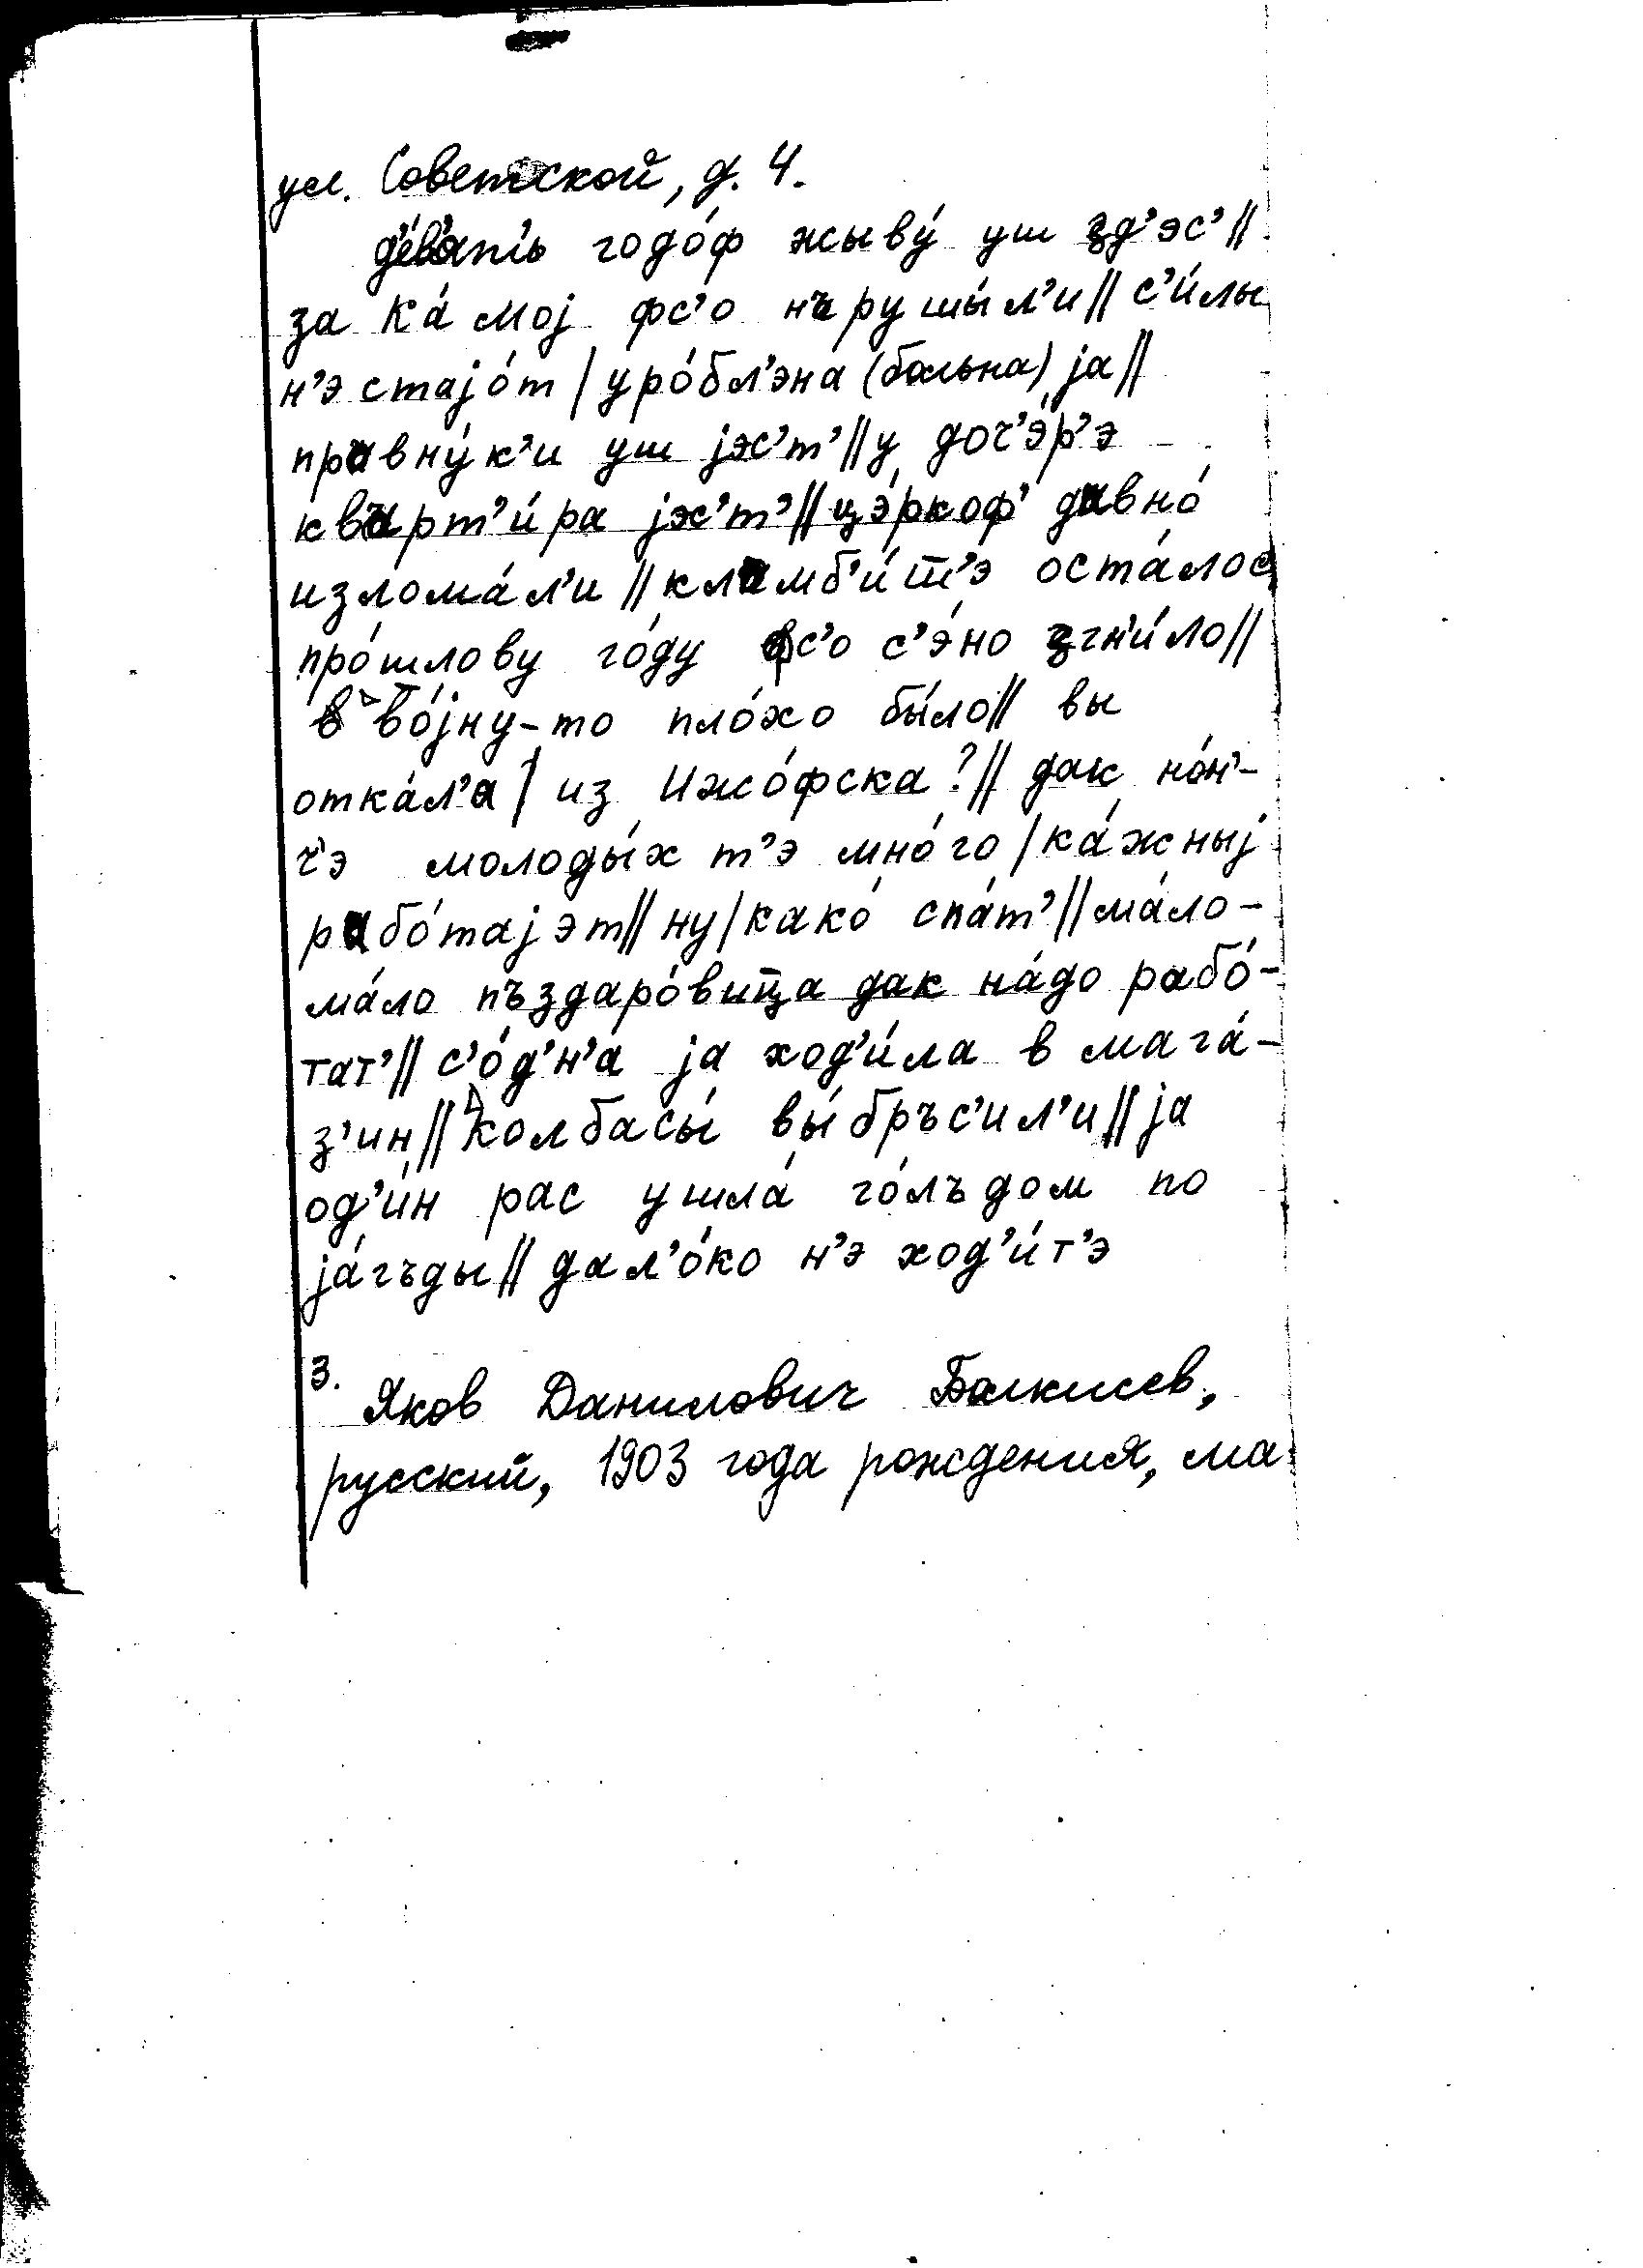 ул. Советской, д. 4.
д'éв'ат'ь годо́ф жыву́ уш зд'эс'//
за ка́мој фс'о нърушы́л'и// с'и́лы
н'э стајо́т / уро́бл'эна (больна) ја//
правну́к'и уш јэс'т'// у доч'э́р'э
кварт'и́ра јэс'т'// цэ́ркоф' давно́
излома́л'и // кламб'и́т'э оста́лос
про́шлову го́ду фс'о с'э́но згн'и́ло//
в во́јну-то пло́хо бы́ло// вы
отка́л'а / из Ижо́фска?// дак но́н'-
ч'э молоды́х т'э мно́го / ка́жныј
рабо́тајэт// ну / како́ спа́т'// ма́ло-
ма́ло пъздаро́вища дак на́до рабо́-
тат'// с'о́д'н'а ја ход'и́ла в мага́-
з'ин// колбасы́ вы́бръс'ил'и// ја
од'и́н рас ушла́ го́лъдом по
ја́гъды// дал'о́ко н'э ход'и́т'э
3. Яков Данилович
русский, 1903 года рождения, ма